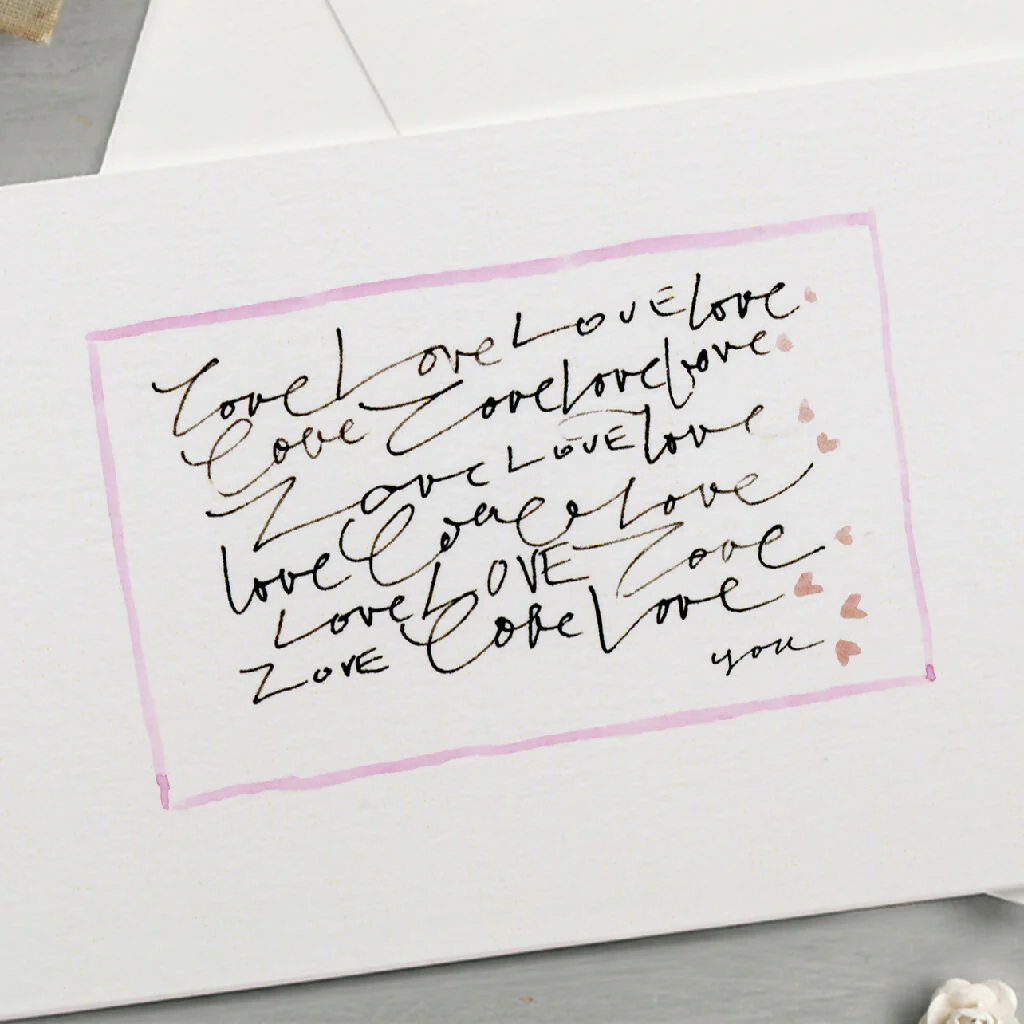 Love Love LOVE love
Love Love love love
Love LOVE love
love Love Love
Love LOVE Love
LOVE Love Love
you